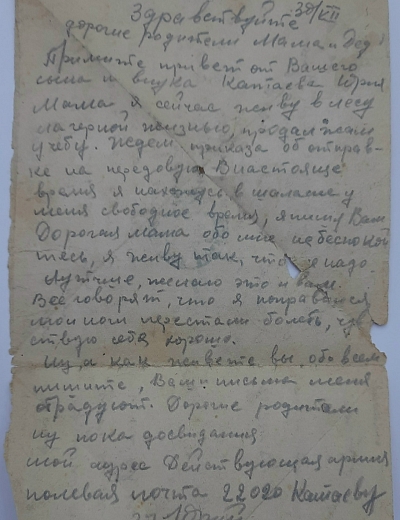 Здравствуйте 30/VII
дорогие родители Мама и Дед
Примите привет от Вашего
сына и внука Катаева Юрия
Мама я сейчас живу в лесу
лагерной жизнью, продолжаем
учебу. Ждем приказа об отправ-
ке на передовую. В настояще
время я нахожусь в шалаше у
меня свободное время, я пишу Вам
Дорогая мама обо мне не беспокой
тесь, я живу так, что не надо
лутчие, желаю это и вам.
Все говорят, что я поправился
мои ноги перестали болеть, чув
ствую себя хорошо.
Ну, а как живете вы, обо всем
пишите, Ваши письма меня
обрадуют. Дорогие родители
ну пока досвидания
мой адрес Действующая армия
полевая почта 22020 Катаеву